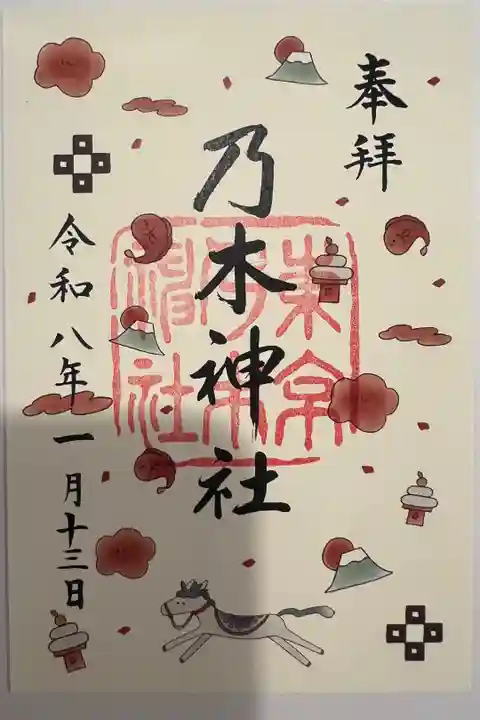 奉拝
東京
乃木
神社
乃木神社
令和八年一月十三日